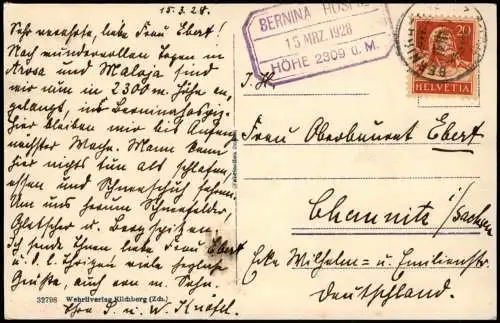 15.3.28.
Sehr verehrte, liebe Frau Ebert!
Nach wundervollen Tagen in
Arosa und Maloja sind
wir nun in 2300 m. Höhe an-
gelangt, im Berninahospiz.
Hier bleiben wir bis Anfang
nächster Woche. Man kann
hier nichts tun als schlafen,
essen und Schneeschuh fahren.
Um uns herum Schneefelder,
Gletscher u. Bergspitzen.
Ich sende Ihnen liebe Frau Ebert
u. d. Ihrigen viele herzliche
Grüße, auch von m. Sohn.
Ihre u. W.
32798 Wehrliverlag Kilchberg (Zch.)
BERNINA HOSPIZ
15 MRZ. 1928
HÖHE 2309 ü. M.
BERNINA
20
HELVETIA
T. H.
Frau Oberbaurat Ebert
Chemnitz i/Sachsen
Ecke Wilhelm= u. Emilienstr.
Deutschland.